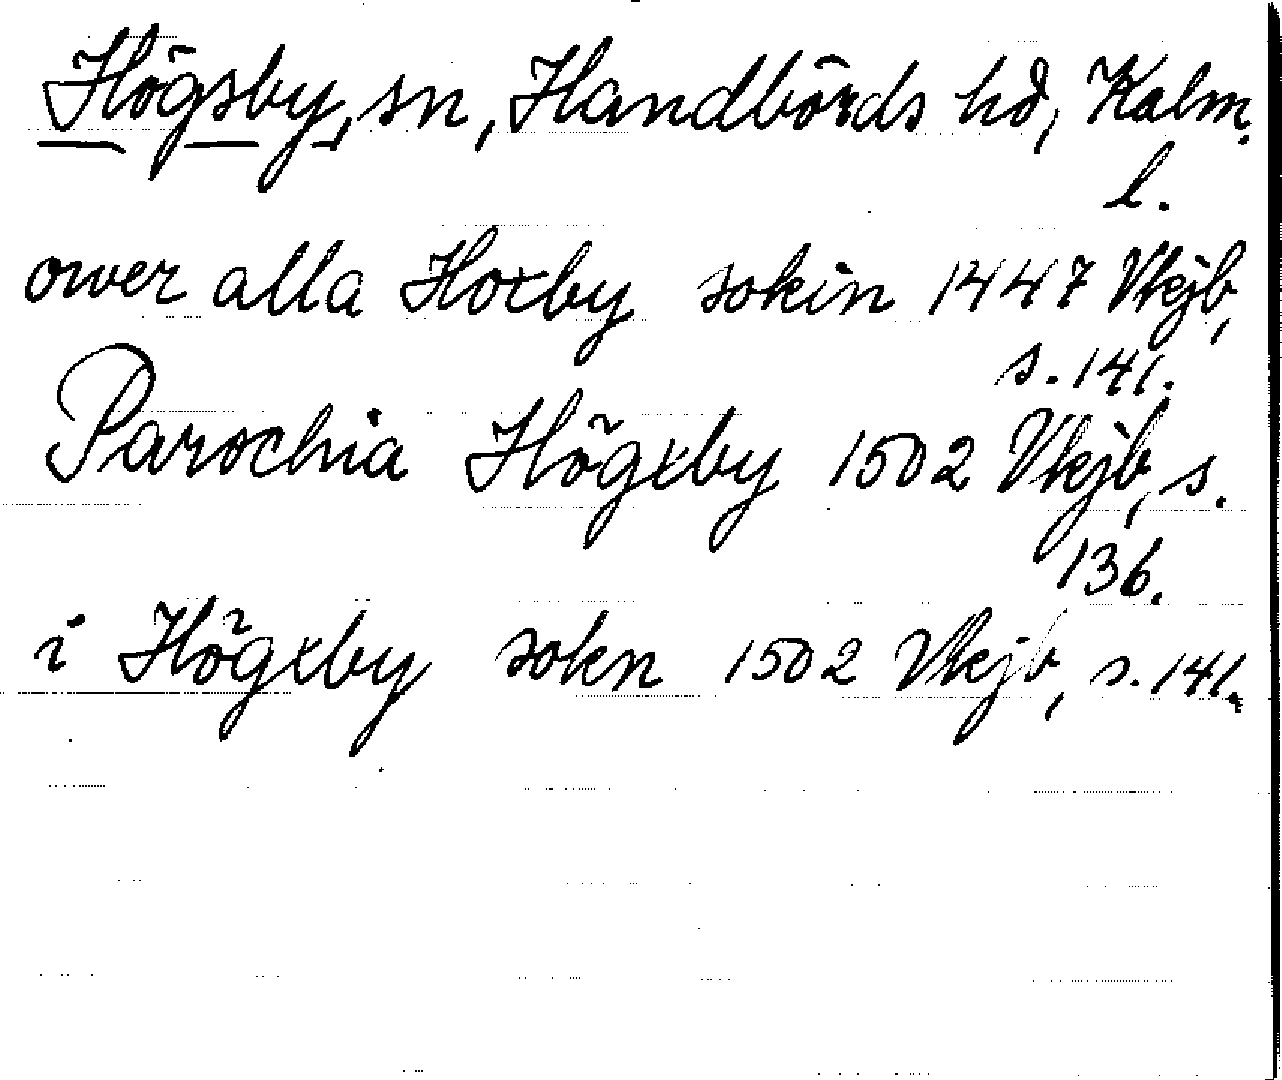 Högsby, sn, Handbörds hd, Kalm.
l.
ower alla Hoxby sokin 1447 Vkjb,
s. 141.
Parochia Högxby 1502 Vkjb, s.
136.
i Högxby sokn 1502 Vkjb, s. 141.